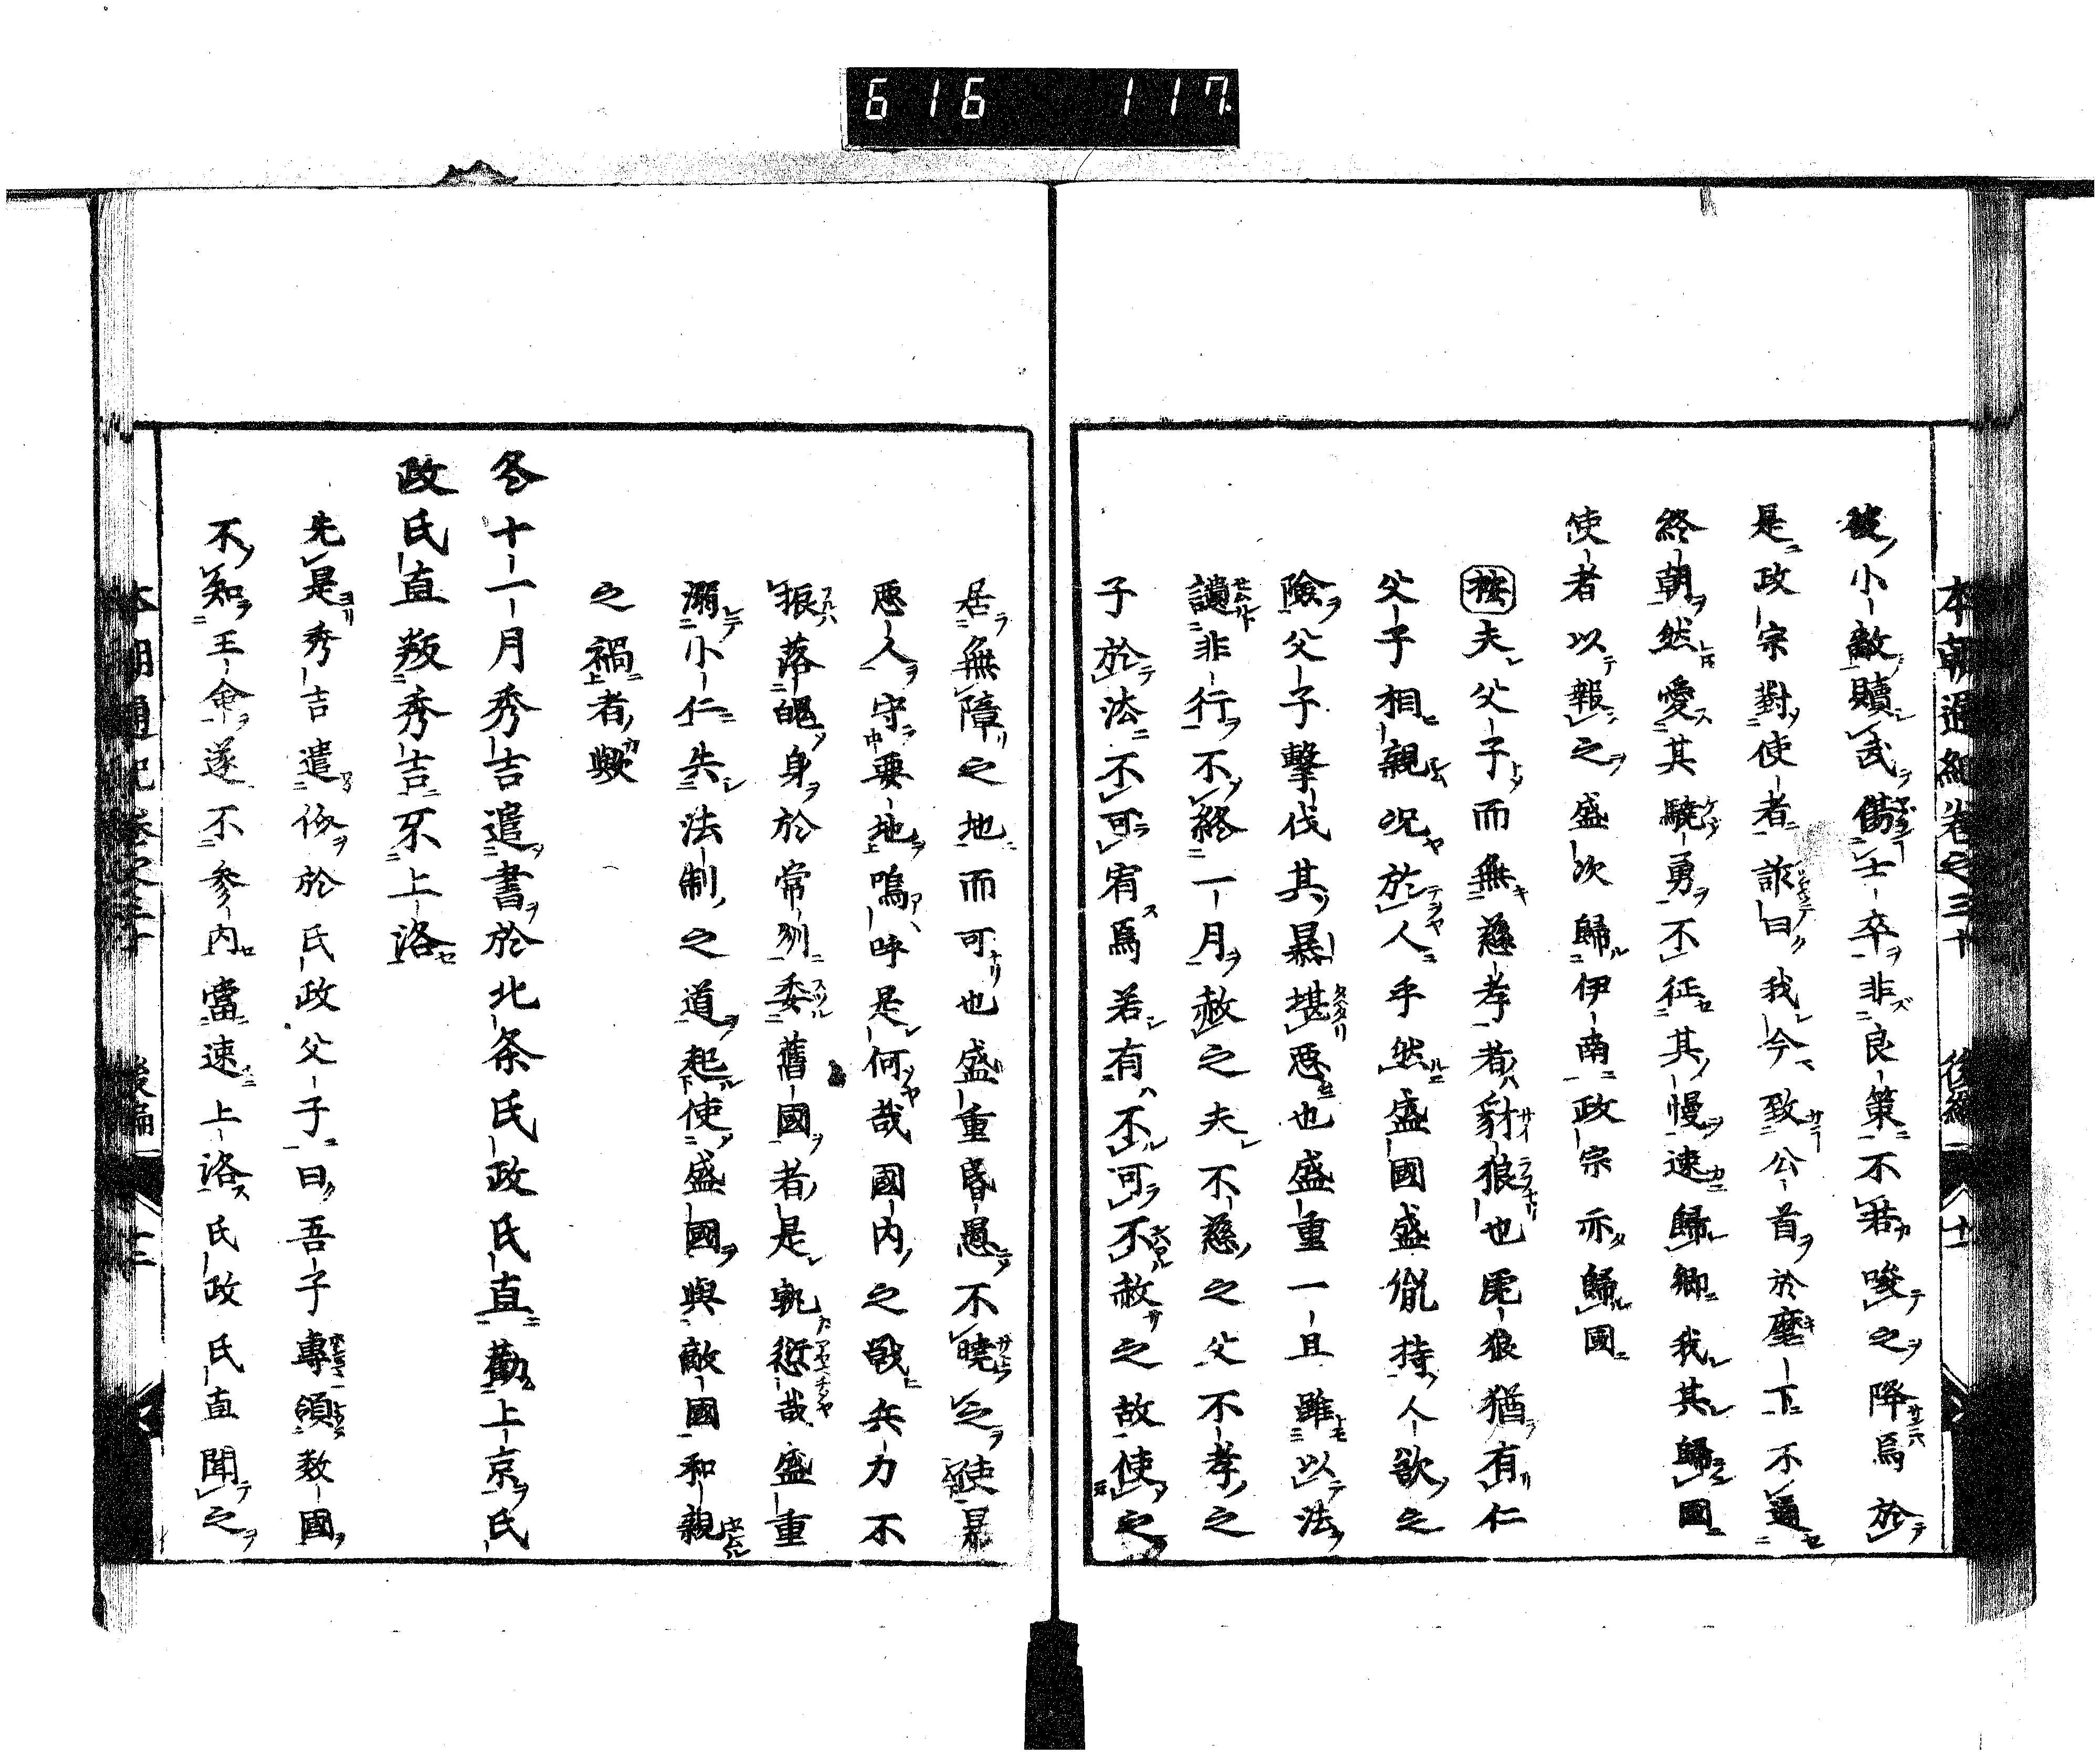 616 117
本朝通紀卷之三十 後編 十一
彼小敵贖武傷士卒非良策不若唆之降焉於
是政宗對使者詠曰我今致公首於麾下不通
終朝然愛其驍勇不征其慢速歸鄉我其歸國
使者以報之盛次歸伊南政宗亦歸國
按夫父子而無慈孝者豺狼也庛狼猶有仁
父子相親况於人乎然盛國盛胤持人欲之
險父子擊伐其暴堪惡也盛重一旦雖以法
譴非行不終一月赦之夫不慈之父不孝之
子於法不可宥焉若有不可不赦之故使之
居無障之地而可也盛重昏愚不曉之使暴
惡人守要地嗚呼是何哉國内之戰兵力不
振落魄身於常列委舊國者是孰愆哉盛重
溺小仁失法制之道起使盛國與敵國和親
之禍者歟
冬十一月秀吉遣書於北条氏政氏直勸上京氏
政氏直叛秀吉不上洛
先是秀吉遣使於氏政父子曰吾子專領数國
不知王命遂不參内當速上洛氏政氏直聞之
本朝通紀卷之三十 後編 十二